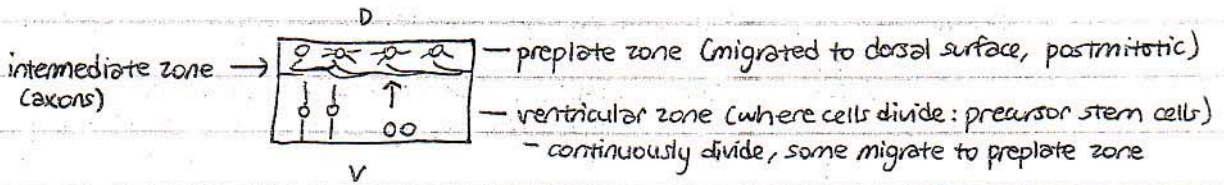 D
intermediate zone →
(axons)
— preplate zone (migrated to dorsal surface, postmitotic)
— ventricular zone (where cells divide: precursor stem cells)
- continuously divide, some migrate to preplate zone
V